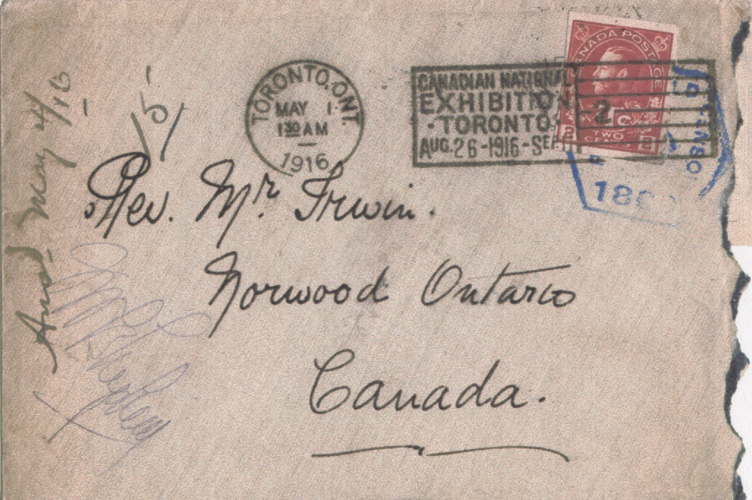 TORONTO, ONT.
MAY 1
1 30 AM
1916
CANADIAN NATIONAL
EXHIBITION
TORONTO
AUG. 26-1916-SEP
CANADA POSTAGE
2 C
2 TWO 2
15
Ansd May 4/16
Rev. Mr. Irwin.
Norwood Ontario
Canada.